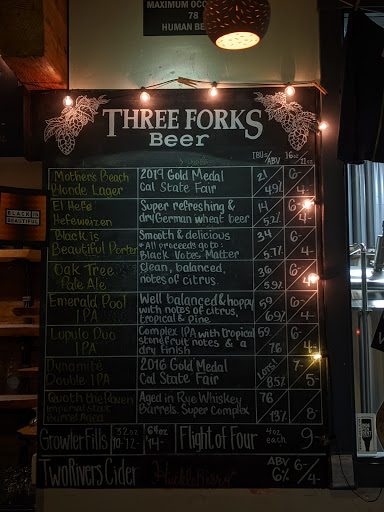 MAXIMUM OCC
78
HUMAN BE
THREE FORKS
Beer
IBU's/ABV 16oz 12oz
Mother's Beach Blonde Lager 2019 Gold Medal Cal State Fair 21 4.9% 6- 4-
El Hefe Hefeweizen Super refreshing & dry German wheat beer 14 5.2% 6- 4-
Black is Beautiful Porter Smooth & delicious * All proceeds go to: Black Votes Matter 34 5.7% 6- 4-
Oak Tree Pale Ale Clean, balanced, notes of citrus 36 5.9% 6- 4-
Emerald Pool IPA Well balanced & hoppy with notes of citrus, tropical & pine 59 6.9% 6- 4-
Lupulo Duo IPA Complex IPA with tropical stonefruit notes & a dry finish 59 7% 6- 4-
Dynamite Double IPA 2016 Gold Medal Cal State Fair Lots! 8.5% 7- 5-
Quoth the Raven Imperial Stout Barrel Aged Aged in Rye Whiskey Barrels. Super Complex 76 13% 8-
Growler Fills 32oz 10-12- 64oz 14- Flight of Four 4oz each 9-
Two Rivers Cider ABV 6% 6- 4-
BLACK IS
BEAUTIFUL